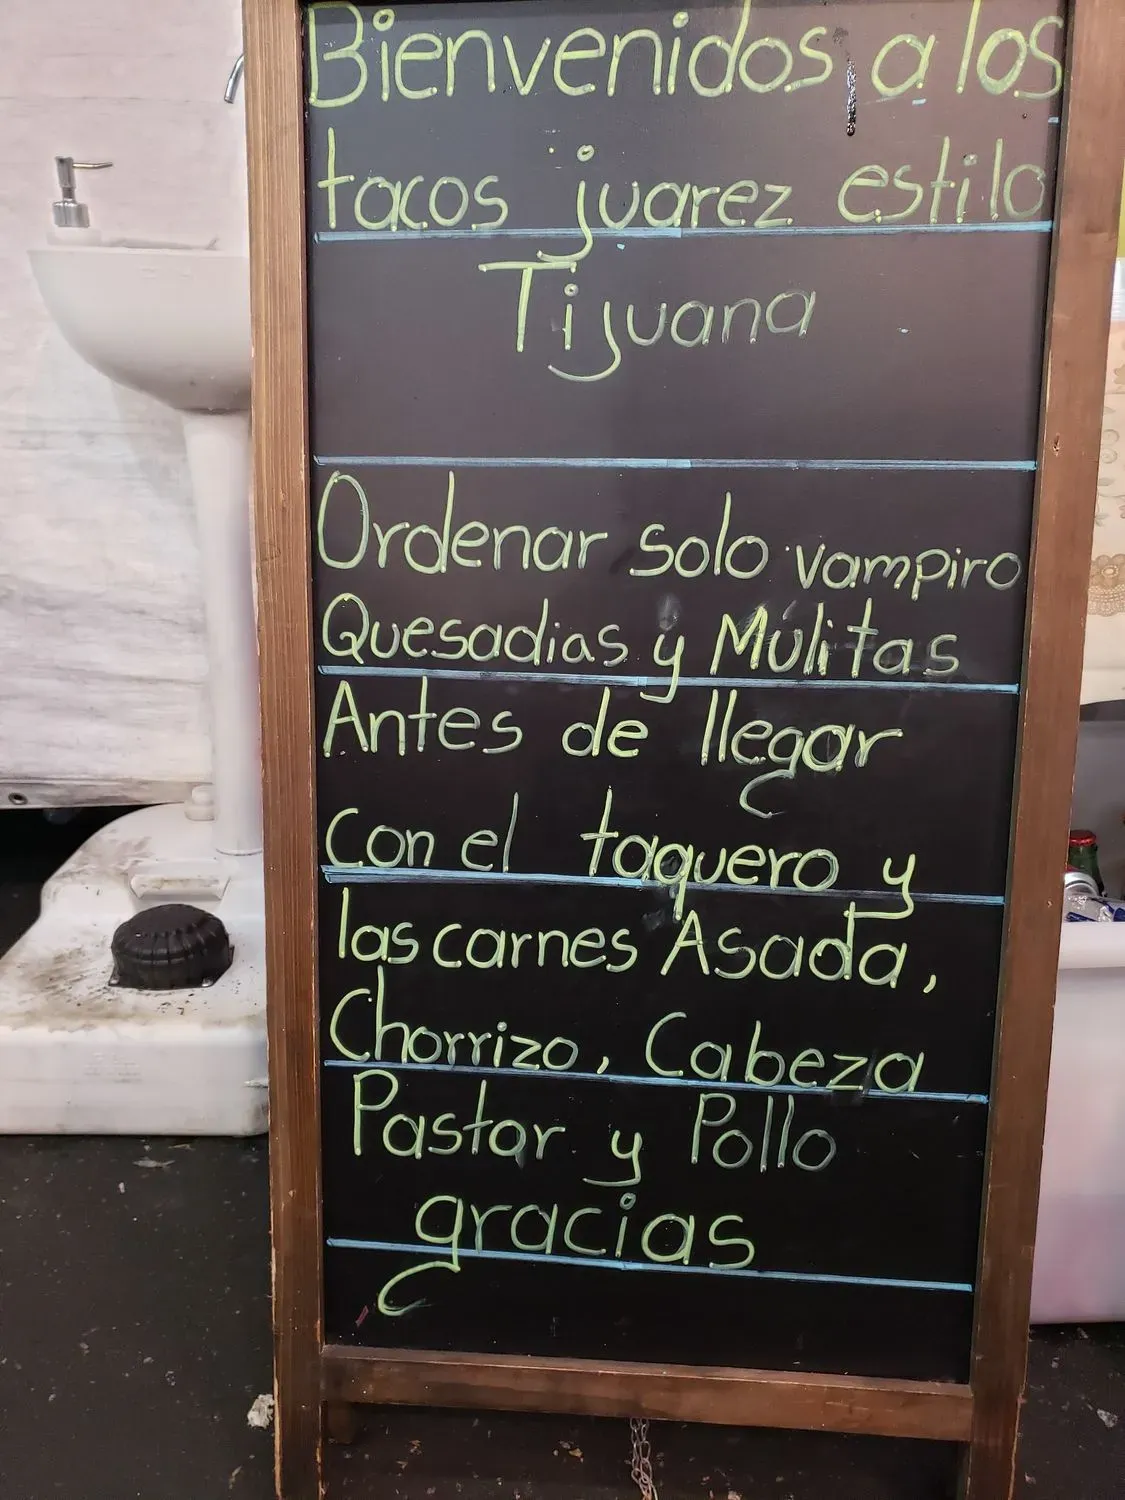 Bienvenidos a los
tacos juarez estilo
Tijuana
Ordenar solo vampiro
Quesadias y Mulitas
Antes de llegar
con el taquero y
las carnes Asada,
Chorrizo, Cabeza
Pastor y Pollo
gracias